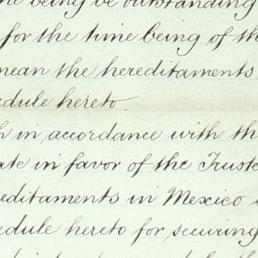 being be outstanding
for the time being of th
mean the hereditaments
edule hereto.
h in accordance with th
ate in favor of the Truste
editaments in Mexico
edule hereto for securing